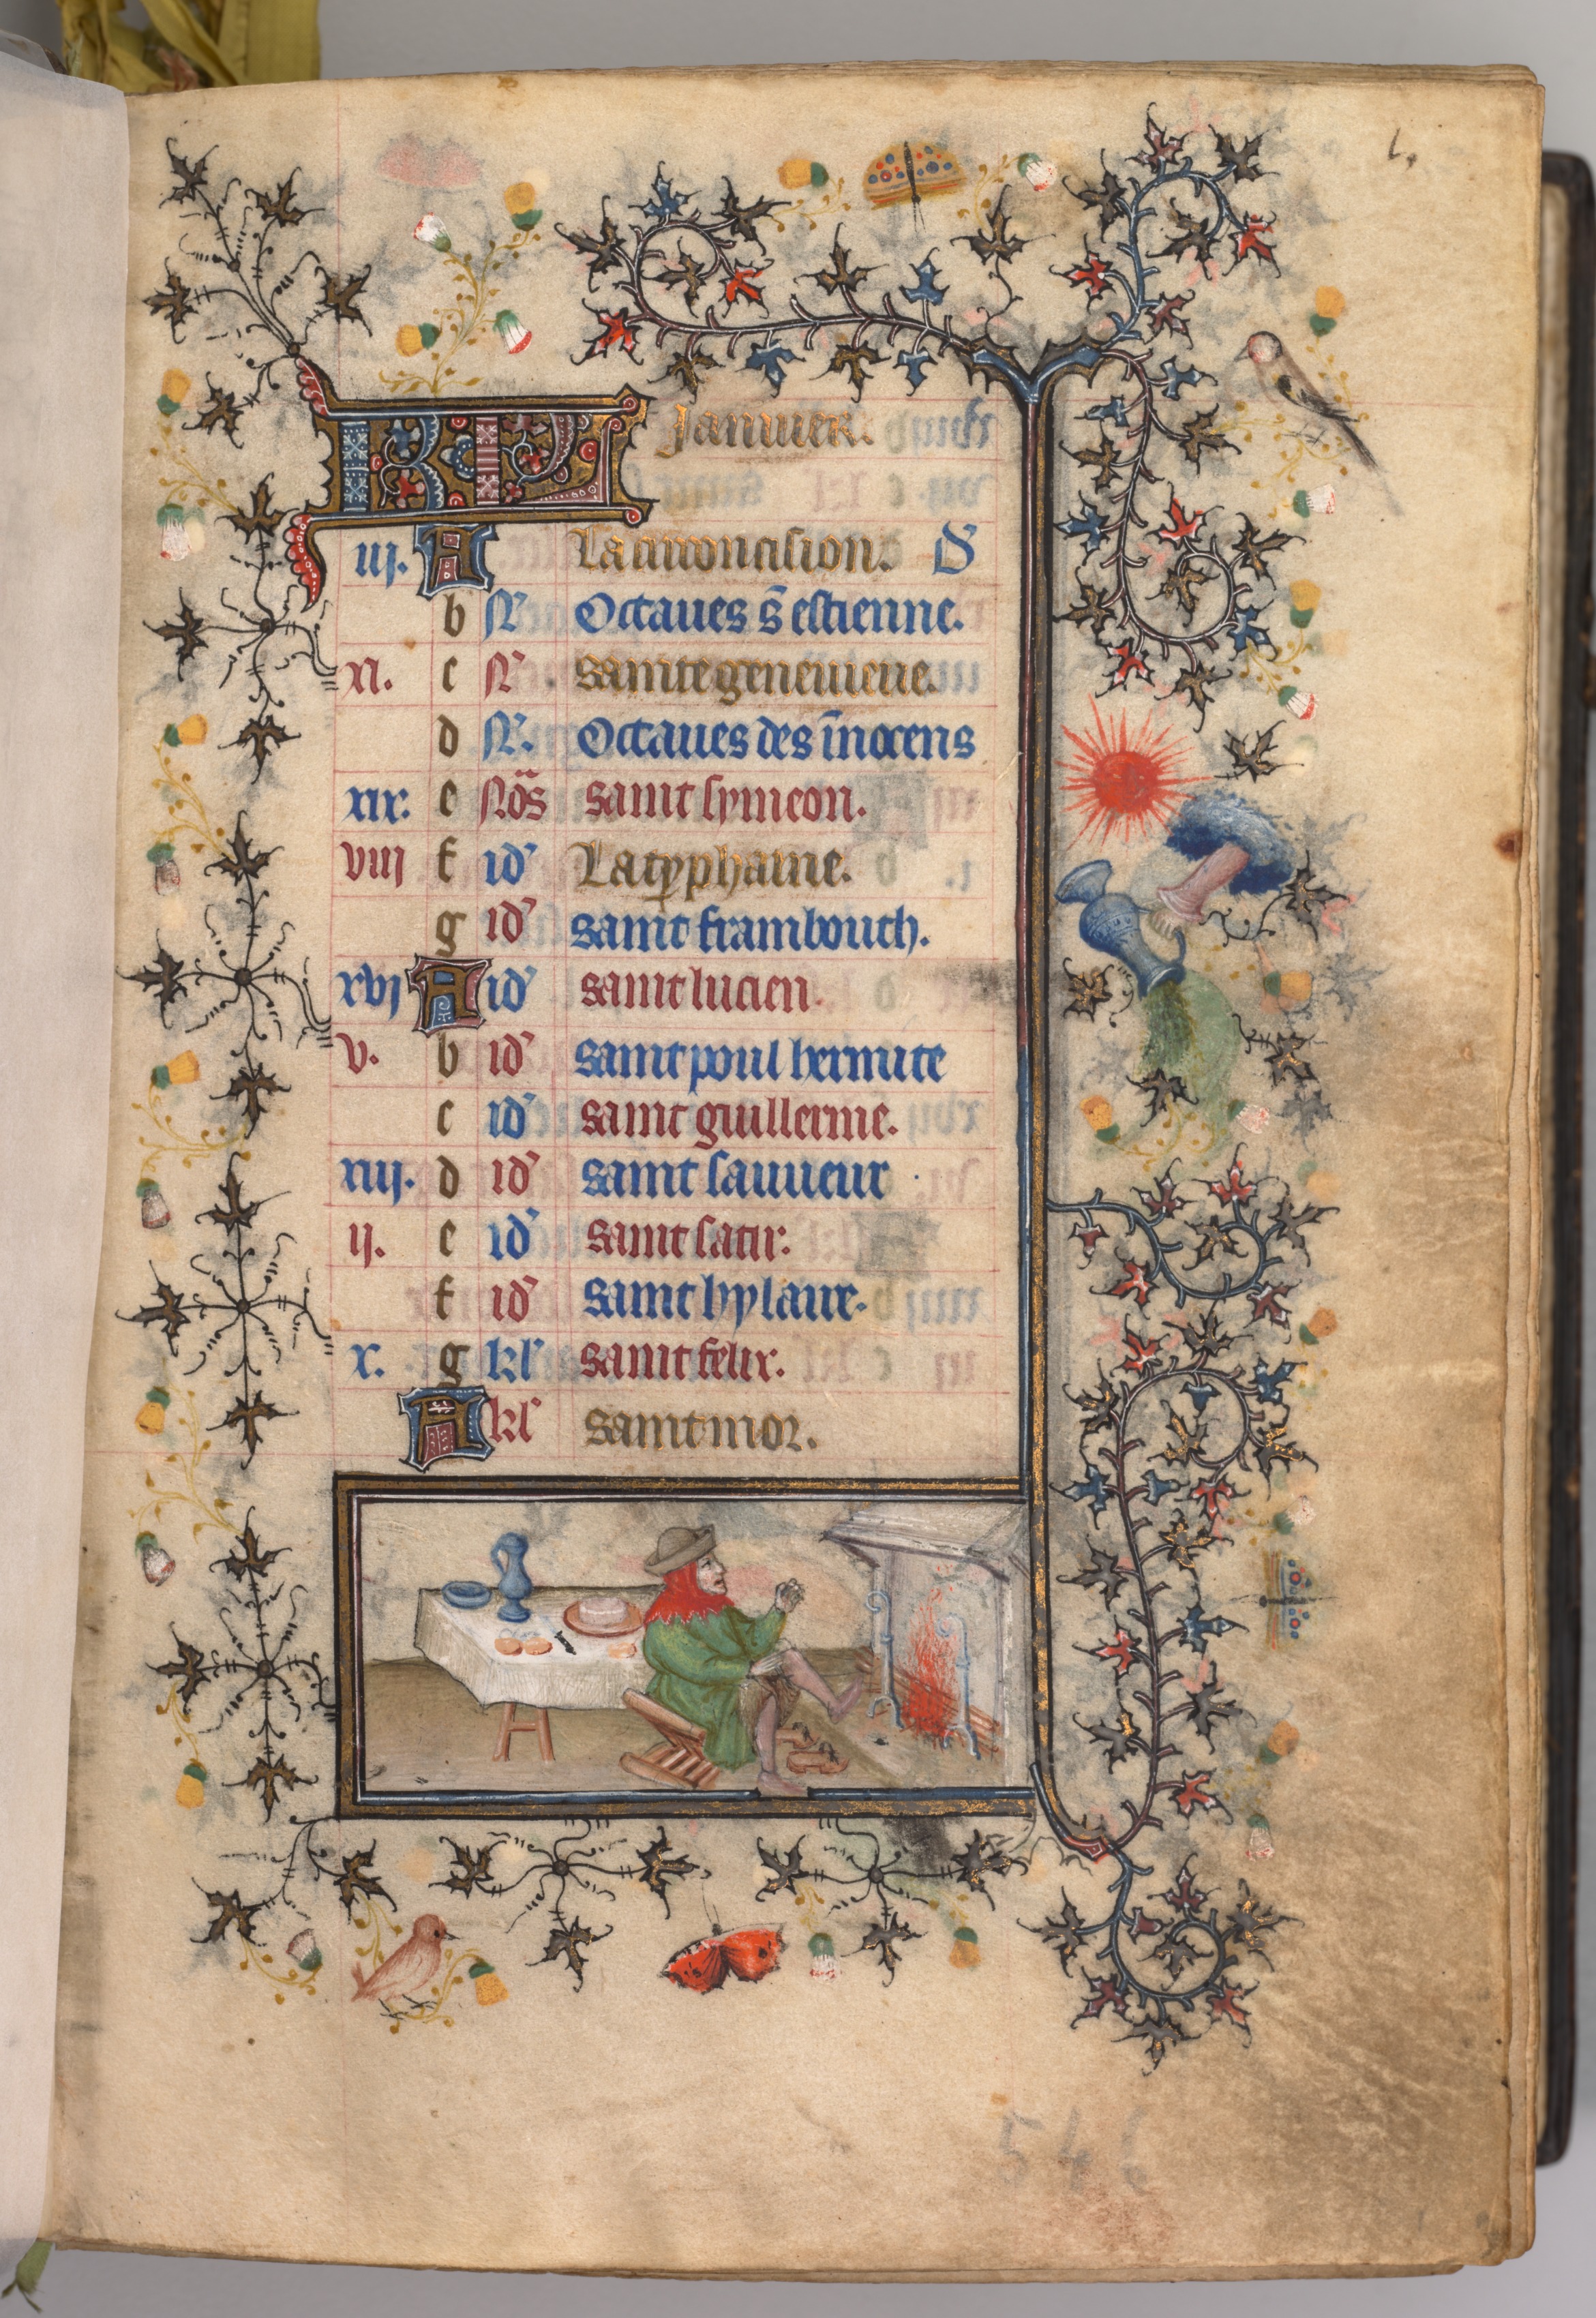 KL Januier.
iij. A La circoncision. D
b N Octaues s̄ estienne.
xi. c N sainte geneuieue.
d N. Octaues des īnocens
xix. e Nōs saint symeon.
viij f id' La typhaine.
g id' saint frambouch.
xvj A id' saint lucien.
v. b id' saint poul hermite
c id' saint guillerme.
xiij. d id' saint sauueur
ij. e id' saint satir.
f id' saint hylaire.
x. g kl' saint felix.
A kl' saint mor.
546